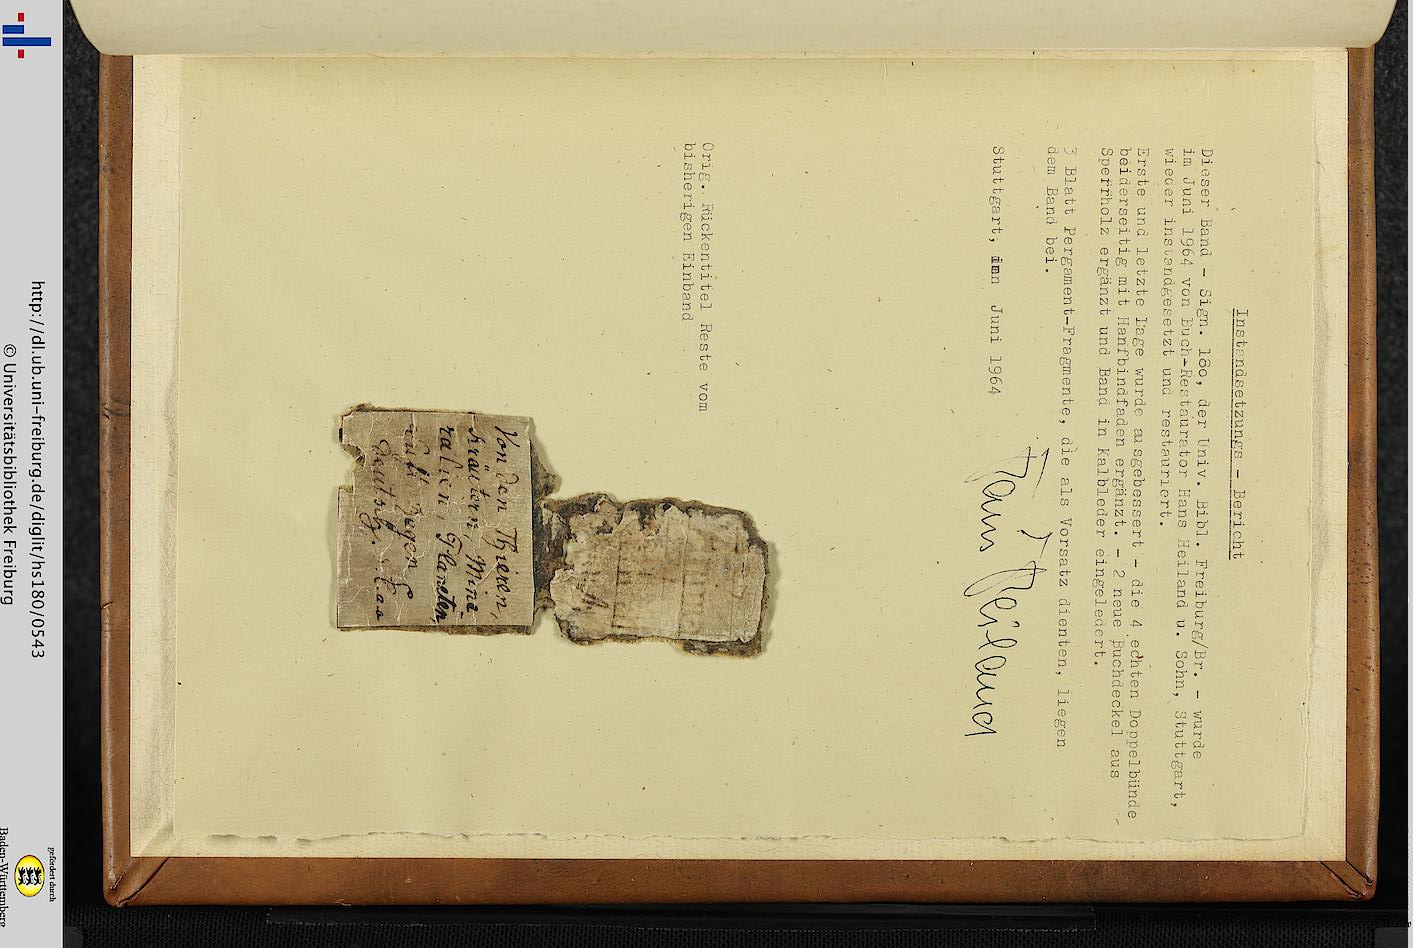 Instandsetzungs - Bericht
Dieser Band - Sign. 180, der Univ. Bibl. Freiburg/Br. - wurde
im Juni 1964 von Buch-Restaurator Hans Heiland u. Sohn, Stuttgart,
wieder instandgesetzt und restauriert.
Erste und letzte Lage wurde ausgebessert - die 4 echten Doppelbünde
beiderseitig mit Hanfbindfaden ergänzt. - 2 neue Buchdeckel aus
Sperrholz ergänzt und Band in Kalbleder eingeledert.
3 Blatt Pergament-Fragmente, die als Vorsatz dienten, liegen
dem Band bei.
Stuttgart, im Juni 1964
Hans Heiland
Orig. Rückentitel Reste vom
bisherigen Einband
Von den Thieren,
Kräutern, Mine-
ralien, Planeten,
deutsch.
http://dl.ub.uni-freiburg.de/diglit/hs180/0543
© Universitätsbibliothek Freiburg
gefördert durch
Baden-Württemberg